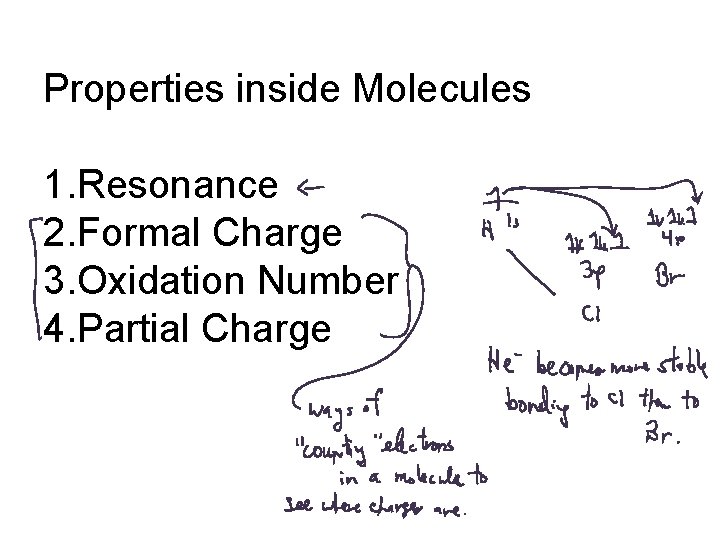 Properties inside Molecules
1. Resonance ←
2. Formal Charge
3. Oxidation Number
4. Partial Charge
ways of
"counting" electrons
in a molecule to
see where charges are.
H 1s
3p
Cl
4p
Br
He⁻ becomes more stable
bonding to Cl than to
Br.